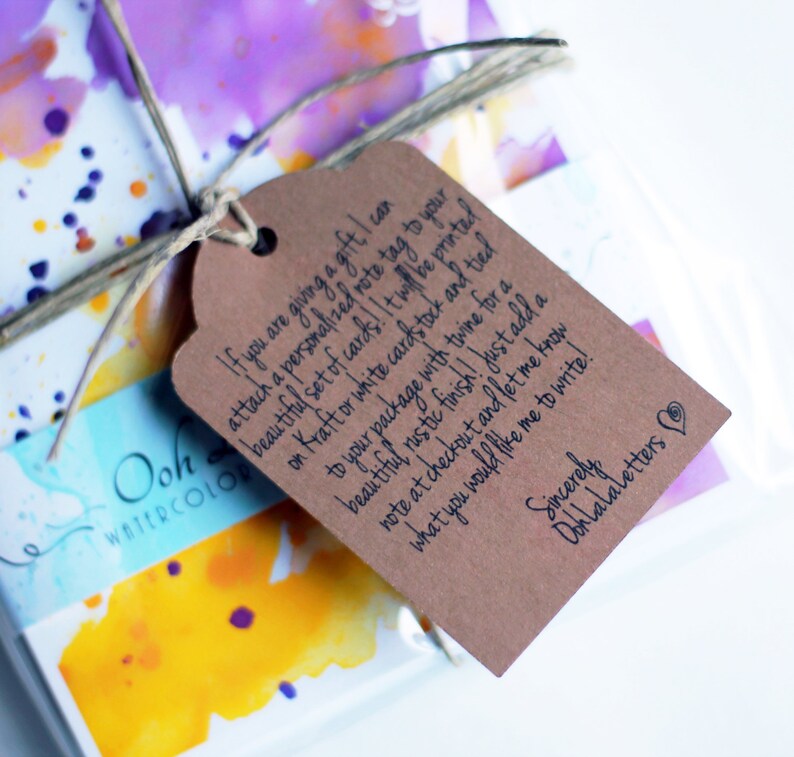 If you are giving a gift, I can
attach a personalized note tag to your
beautiful set of cards! It will be printed
on Kraft or white cardstock and tied
to your package with twine for a
beautiful, rustic finish! Just add a
note at checkout and let me know
what you would like me to write!
Sincerely,
OohLaLaLetters
Ooh
WATERCOLOR